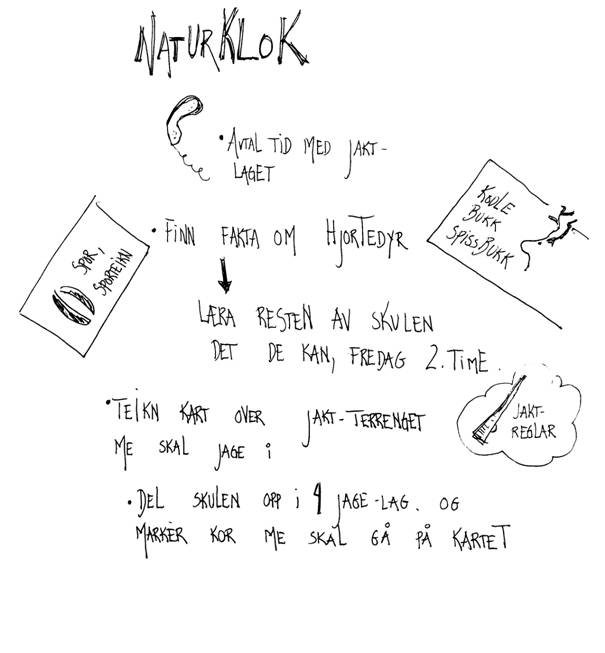 NATURKLOK
• AVTAL TID MED JAKT-
LAGET
• FINN FAKTA OM HJORTEDYR
KOLLE
BUKK
SPISSBUKK
SPOR,
SPORTEIKN
LÆRA RESTEN AV SKULEN
DET DE KAN, FREDAG 2. TIME.
• TEIKN KART OVER JAKT-TERRENGET
ME SKAL JAGE i
JAKT-
REGLAR
• DEL SKULEN OPP i 4 JAGE-LAG. OG
MARKÈR KOR ME SKAL GÅ PÅ KARTET